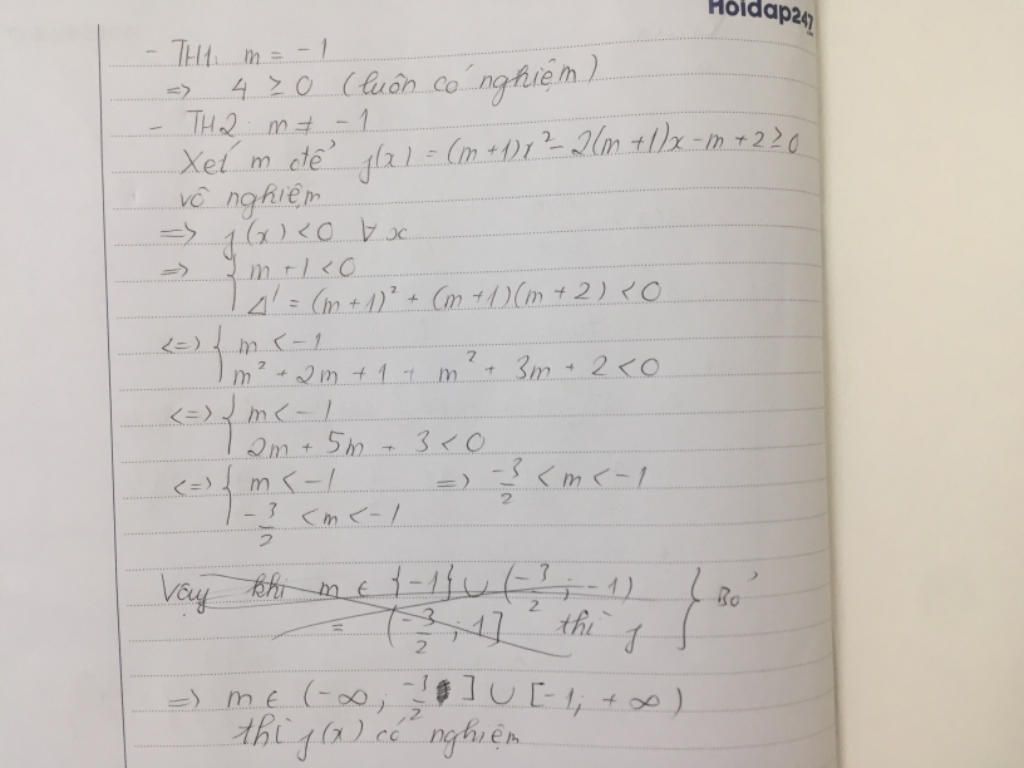 Hoidap247
- TH1. m = -1
=> 4 ≥ 0 (luôn có nghiệm)
- TH2. m ≠ -1
Xét m để f(x) = (m+1)x² - 2(m+1)x - m + 2 ≥ 0
vô nghiệm
=> f(x) < 0 ∀ x
=> { m + 1 < 0
Δ' = (m+1)² + (m+1)(m+2) < 0
<=> { m < -1
m² + 2m + 1 + m² + 3m + 2 < 0
<=> { m < -1
2m + 5m + 3 < 0
<=> { m < -1 => -3/2 < m < -1
-3/2 < m < -1
Vậy khi m ∈ {-1} ∪ (-3/2; -1) } Bỏ
= (-3/2; 1] thì f
=> m ∈ (-∞; ] ∪ [-1; +∞)
thì f(x) có nghiệm